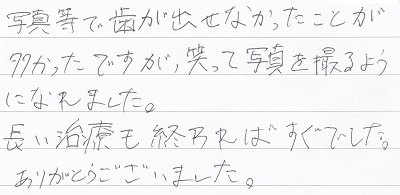 写真等で歯が出せなかったことが
多かったですが、笑って写真を撮るよう
になれました。
長い治療も終わればすぐでした。
ありがとうございました。